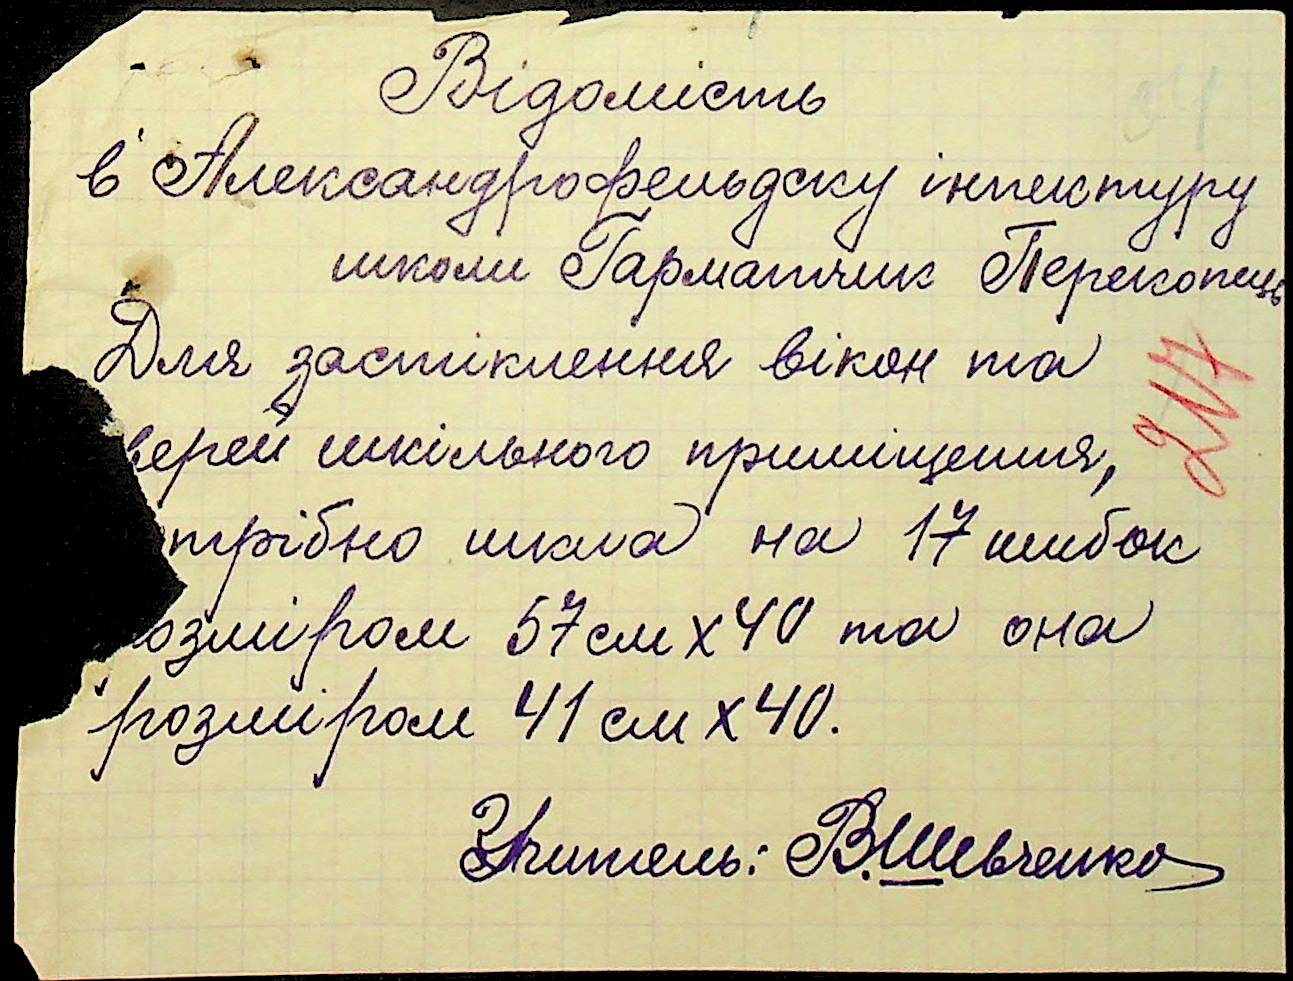 Відомість
в Александрофельдску інпектуру
школи Гарматчик Перекопець
Для застіклення вікон та
верей шкільного приміщення,
трібно шкла на 17 шибок
розміром 57 см х 40 та она
розміром 41 см х 40.
Учитель: В. Шевченко
217